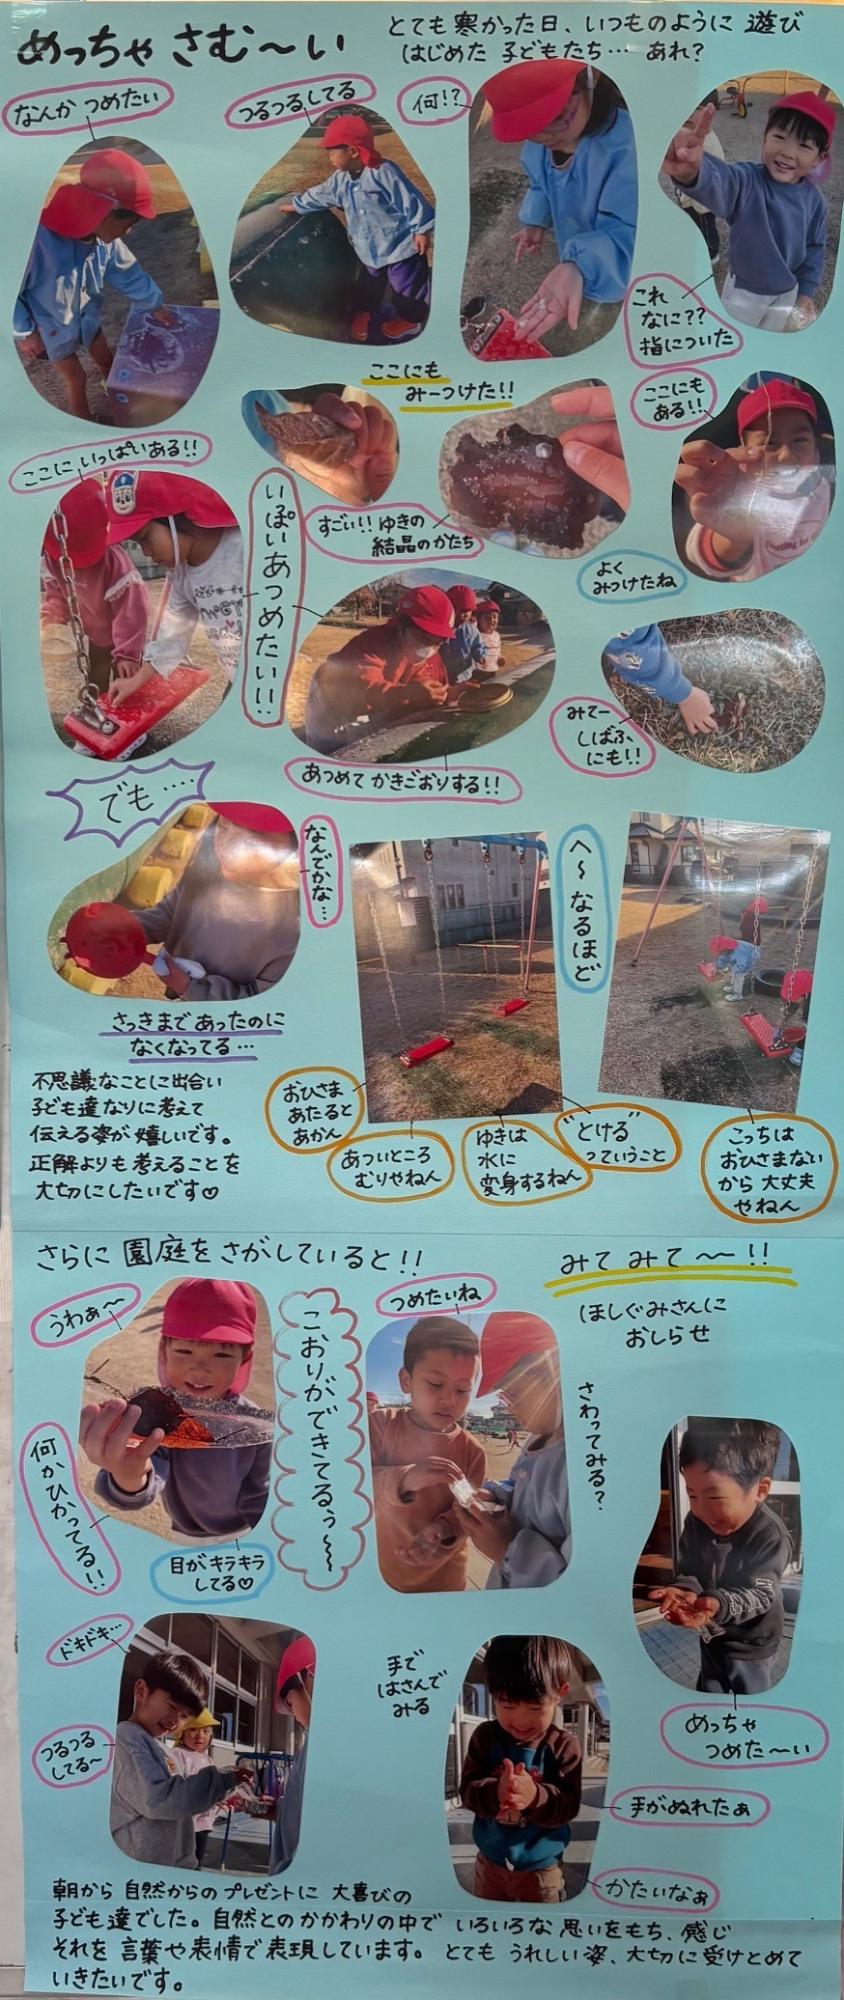 めっちゃ さむ〜い
とても寒かった日、いつものように 遊び
はじめた 子どもたち… あれ?
なんか つめたい
つるつるしてる
何!?
これ
なに??
指についた
ここにも
みーつけた!!
ここにも
ある!!
ここに いっぱいある!!
いぱいあつめたい!!
すごい!! ゆきの
結晶のかたち
よく
みつけたね
みてー
しばふ
にも!!
あつめて かきごおりする!!
でも‥‥
なんでかな…
さっきまで あったのに
なくなってる…
へ〜 なるほど
不思議なことに出合い
子ども達なりに考えて
伝える姿が嬉しいです。
正解よりも考えることを
大切にしたいです♡
おひさま
あたると
あかん
あついところ
むりやねん
ゆきは
水に
変身するねん
"とける"
っていうこと
こっちは
おひさまない
から 大丈夫
やねん
さらに 園庭を さがしていると!!
みて みて〜〜!!
ほしぐみさんに
おしらせ
うわぁ〜
何かひかってる!!
目がキラキラ
してる♡
こおりができてるぅ〜〜
つめたいね
さわってみる?
めっちゃ
つめた〜い
ドキドキ…
つるつる
してる〜
手で
はさんで
みる
手がぬれたぁ
かたいなぁ
朝から 自然からの プレゼントに 大喜びの
子ども達でした。自然とのかかわりの中で いろいろな 思いをもち、感じ
それを 言葉や表情で表現しています。 とても うれしい姿、大切に受けとめて
いきたいです。